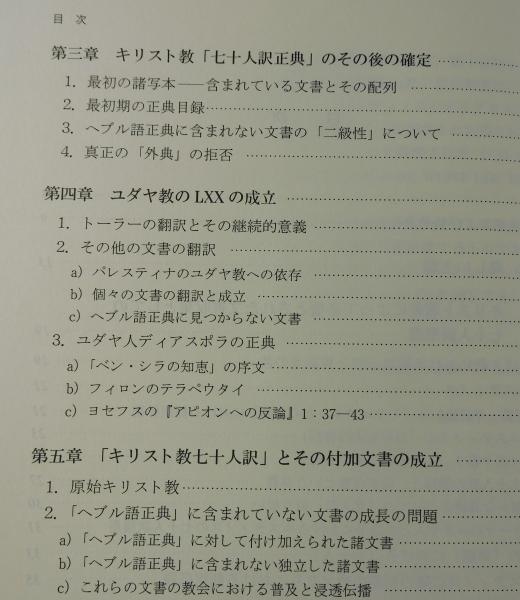 目 次
第三章 キリスト教「七十人訳正典」のその後の確定
1. 最初の諸写本――含まれている文書とその配列
2. 最初期の正典目録
3. ヘブル語正典に含まれない文書の「二級性」について
4. 真正の「外典」の拒否
第四章 ユダヤ教の LXX の成立
1. トーラーの翻訳とその継続的意義
2. その他の文書の翻訳
a) パレスティナのユダヤ教への依存
b) 個々の文書の翻訳と成立
c) ヘブル語正典に見つからない文書
3. ユダヤ人ディアスポラの正典
a)「ベン・シラの知恵」の序文
b) フィロンのテラペウタイ
c) ヨセフスの『アピオンへの反論』1:37―43
第五章 「キリスト教七十人訳」とその付加文書の成立
1. 原始キリスト教
2.「ヘブル語正典」に含まれていない文書の成長の問題
a)「ヘブル語正典」に対して付け加えられた諸文書
b)「ヘブル語正典」に含まれない独立した諸文書
c) これらの文書の教会における普及と浸透伝播